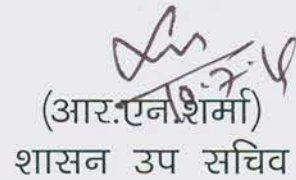 (आर.एन.शर्मा)
शासन उप सचिव